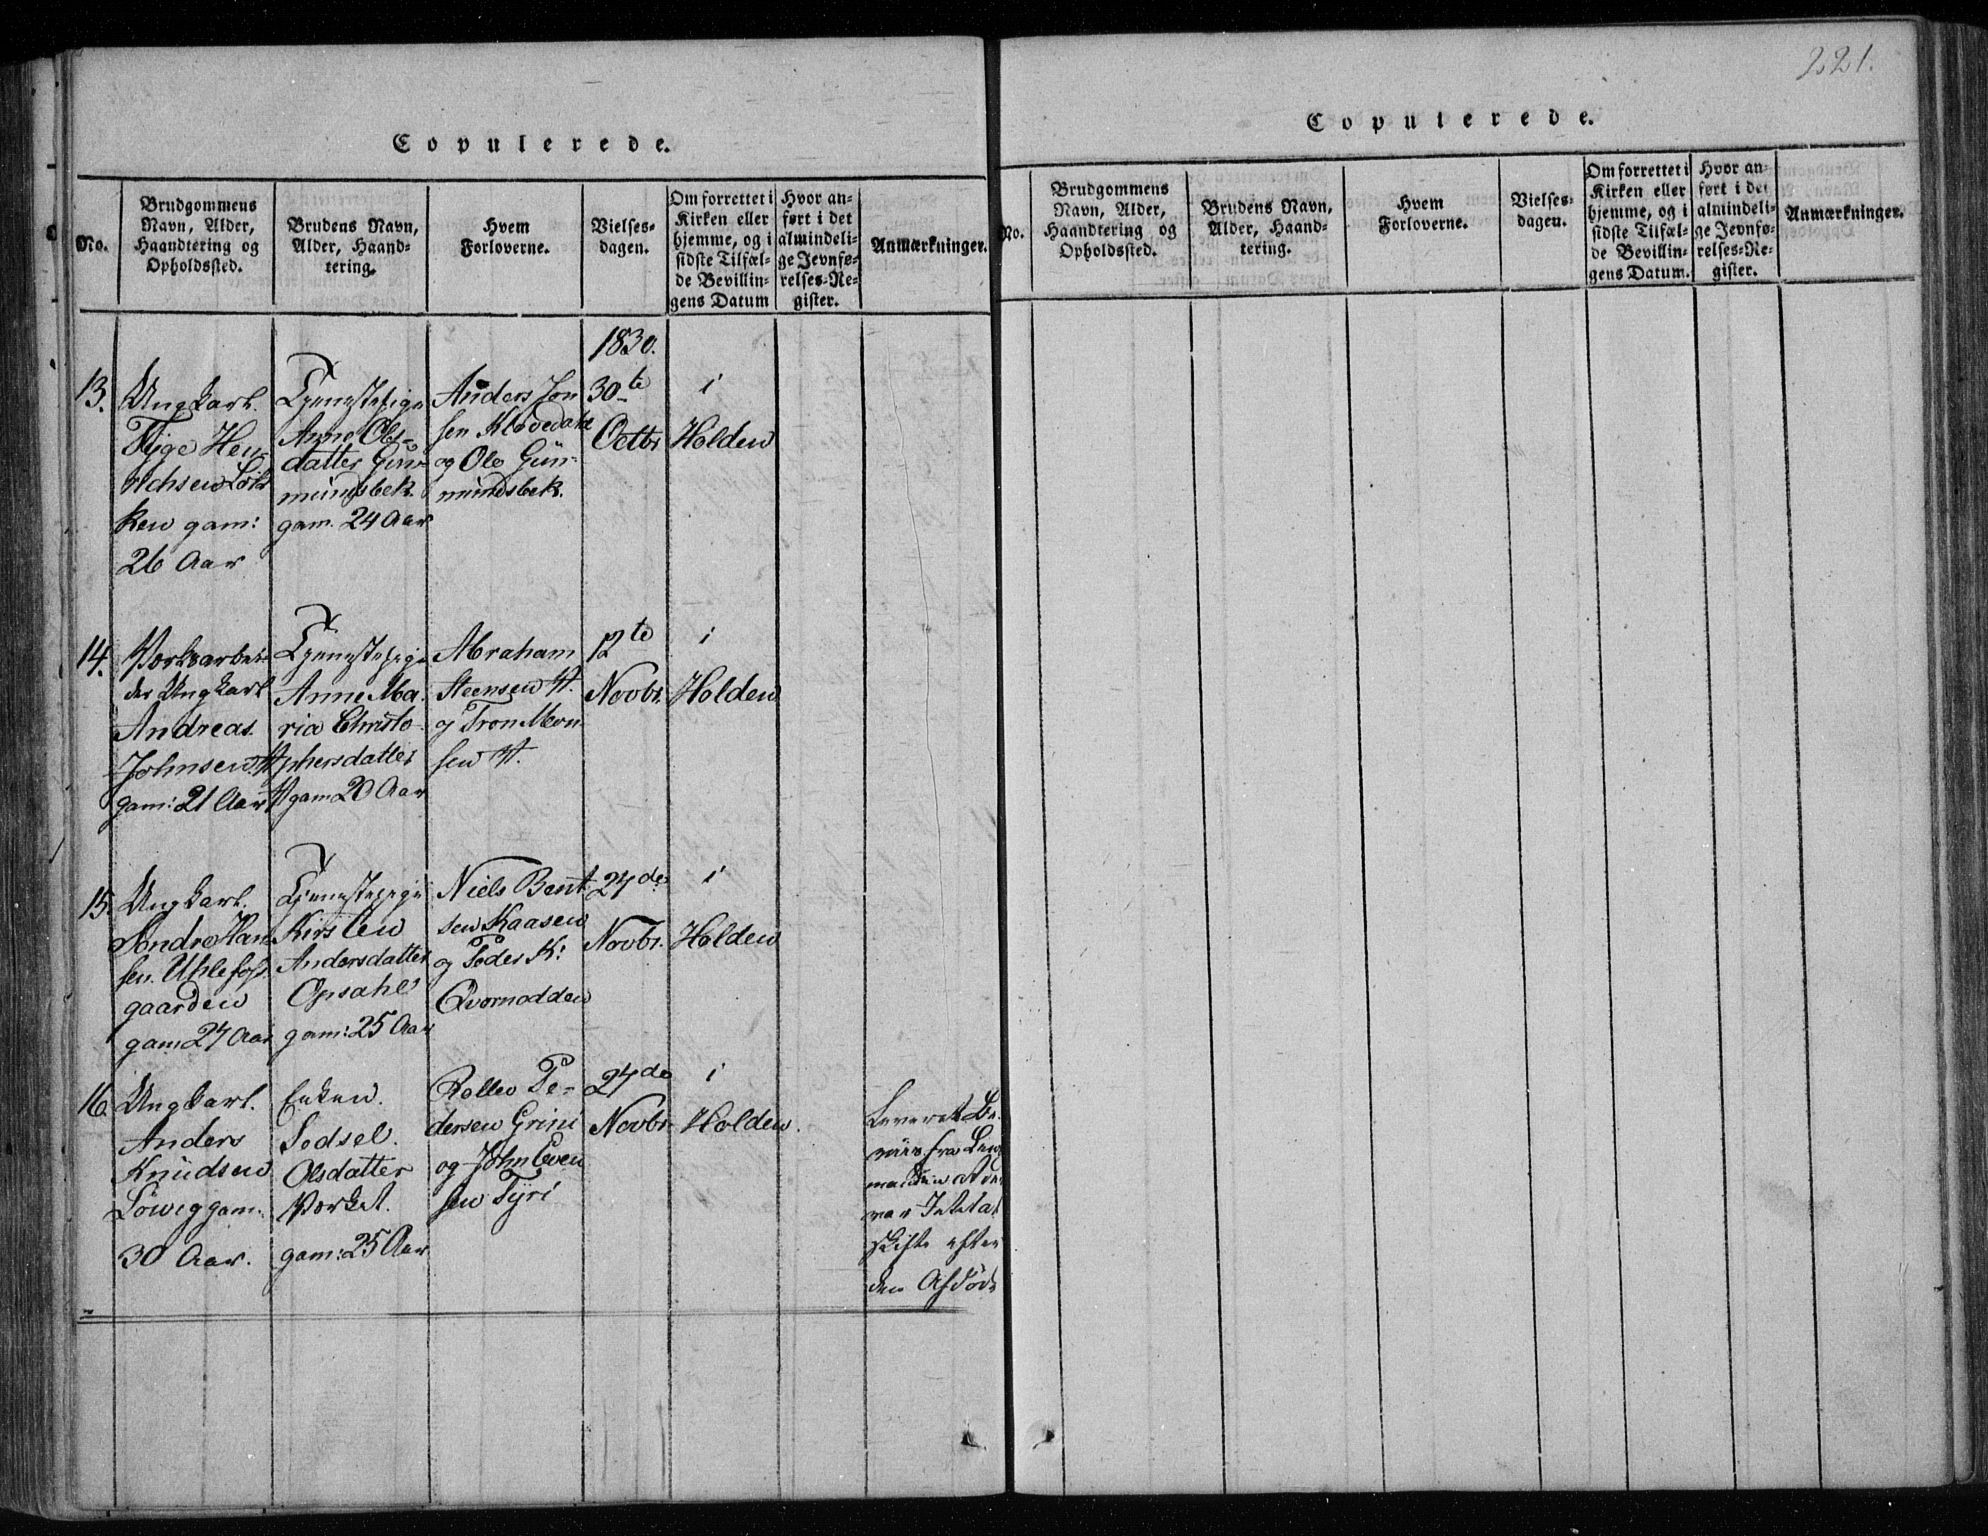 221.
Copulerede.
No.
Brudgommens
Navn, Alder,
Haandtering og
Opholdssted.
Brudens Navn,
Alder, Haand-
tering.
Hvem
Forloverne.
Vielses-
dagen.
Om forrettet i
Kirken eller
hjemme, og i
sidste Tilfæl-
de Bevillin-
gens Datum
Hvor an-
ført i det
almindeli-
ge Jevnfø-
relses-Re-
gister.
Anmærkninger.
1830.
13.
Ungkarl.
Tÿge Hen-
richsen
ken gam:
26 Aar
Tjenestepige
Anne Ols-
datter Gun-
mundsbek.
gam. 24 Aar
Anders Jon
sen Klovedahl
og Ole Gun-
mundsbek.
30-te
Octbr
i
Holden
14.
Værksarbei-
der Ungkarl
Andreas.
Johnsen
gam: 21 Aar
Tjenestepige
Anne Ma-
ria Christo-
phersdatter
gam 20 Aar
Abraham
Steensen V.
og Tron Mon
sen V.
12te
Novbr.
i
Holden
15.
Ungkarl.
Sondre Han-
sen. Uhlefos-
gaarden
gam 27 Aar
Tjenestepige
Kirsten
Andersdatter
Opsahl
gam: 25 Aar
Niels Bent-
sen Kaasen
og Peder K:
Qvernodden
27de
Novbr.
i
Holden
16.
Ungkarl.
Anders
Knudsen
Löwig gam.
30 Aar.
Enken.
Sodsel.
Olsdatter
Værket.
gam: 25 Aar
Rollev Pe-
dersen Grini
og John Even
sen Tÿri
27de
Novbr
i
Holden.
Leveret Be-
viis fra Lens
manden at der
var
skifte efter
den Afdöde
Copulerede.
No.
Brudgommens
Navn, Alder,
Haandtering og
Opholdssted.
Brudens Navn,
Alder, Haand-
tering.
Hvem
Forloverne.
Vielses-
dagen.
Om forrettet i
Kirken eller
hjemme, og i
sidste Tilfæl-
de Bevillin-
gens Datum.
Hvor an-
ført i det
almindeli-
ge Jevnfø-
relses-Re-
gister.
Anmærkninger.